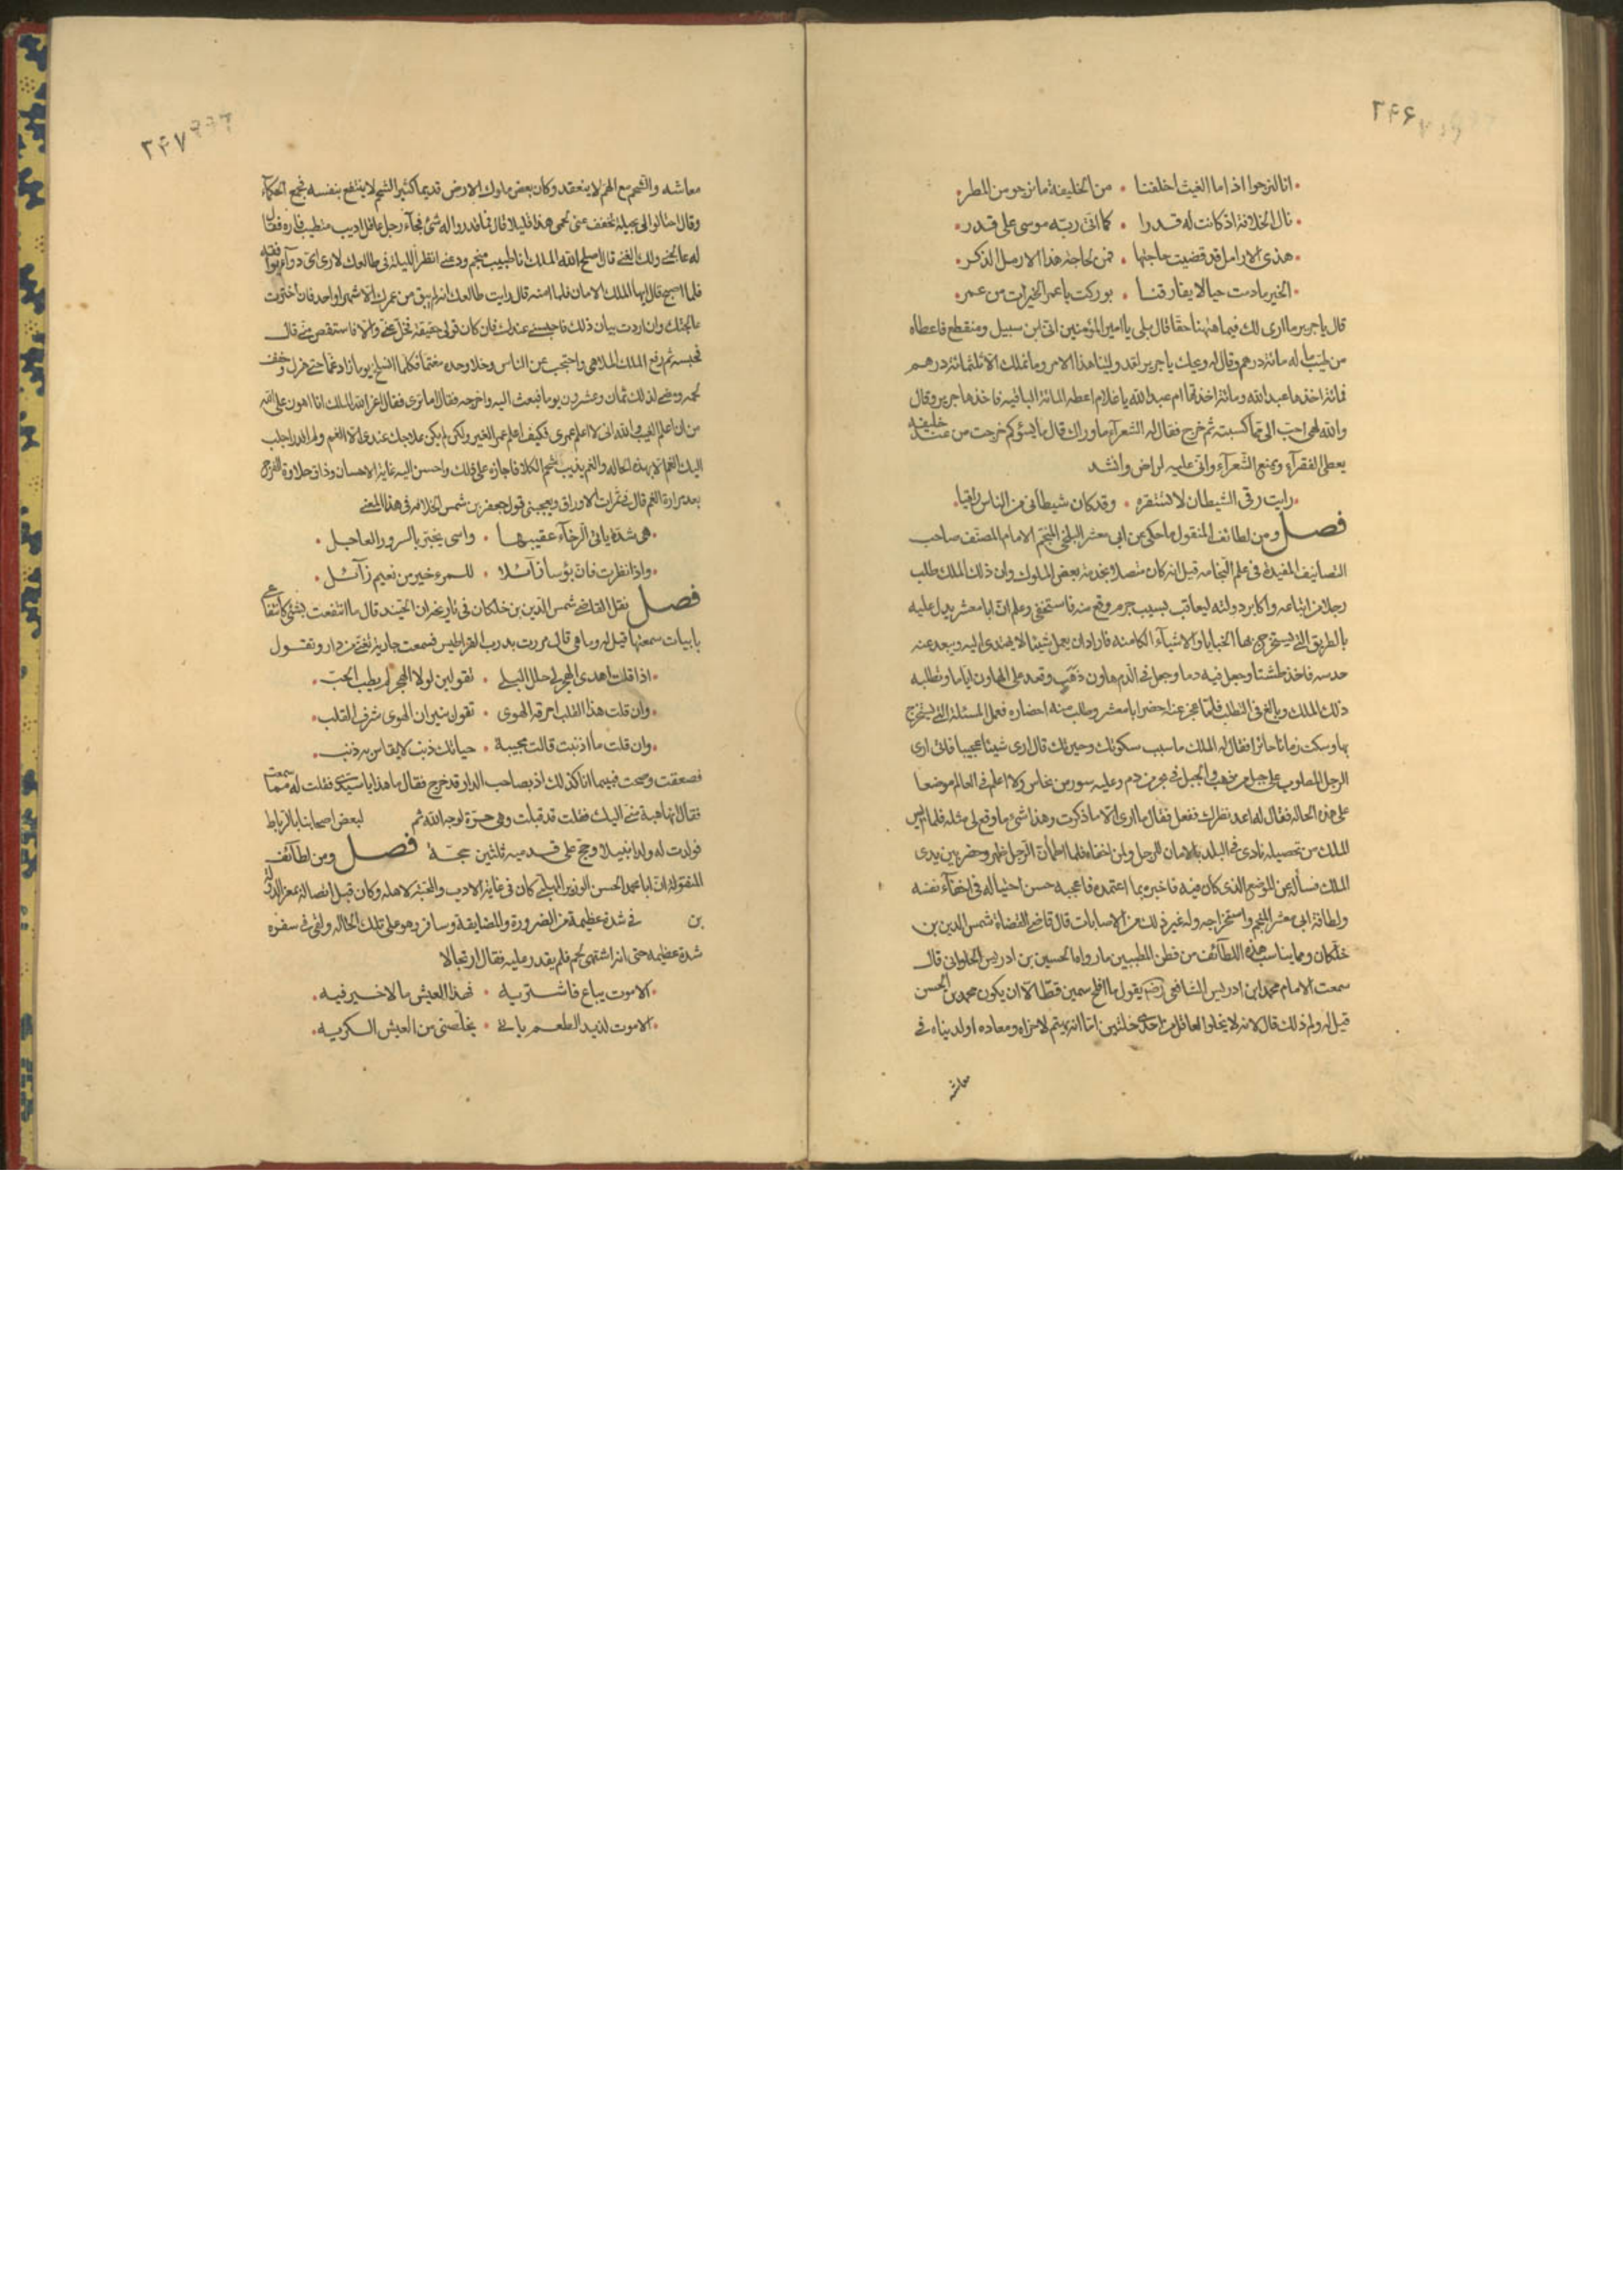 ٢٤٦
انا لنرجوا اذا ما الغيث اخلفنا • من الخليفة ما نرجو من المطر
نال الخلافة اذ كانت له قدرا • كما اتى ربه موسى على قدر
هذى الارامل قد قضيت حاجتها • فمن لحاجة هذا الارمل الذكر
الخير ما دمت حيا لا يفارقنا • بوركت يا عمر الخيرات من عمر
قال يا جرير ما ارى لك فيما ههنا حقا قال بلى يا امير المؤمنين انى ابن سبيل ومنقطع فاعطاه
من طيب ماله مائة درهم وقال له ويحك يا جرير لقد ولينا هذا الامر وما نملك الا ثلثمائة درهم
فمائة اخذها عبد الله ومائة اخذتها ام عبد الله يا غلام اعطه المائة الباقيه فاخذها جرير وقال
والله لهى احب الى مما كسبته ثم خرج فقال له الشعرآء ما وراك قال ما يسؤكم خرجت من عند خليفة
يعطى الفقرآء ويمنع الشعرآء وانى عليه لراض وانشد
رايت رقى الشيطان لا تستفزه • وقد كان شيطانى من الناس راقيا
فصل ومن لطائف المنقول ما حكى عن ابى معشر البلخى المنجم الامام المصنف صاحب
التصانيف المفيدة فى علم النجامه قيل انه كان متصلا بخدمة بعض الملوك وان ذلك الملك طلب
رجلا من اتباعه واكابر دولته ليعاقبه بسبب جرم وقع منه فاستخفى وعلم ان ابا معشر يدل عليه
بالطريق التى يستخرج بها الخبايا والاشياء الكامنه فاراد ان يعمل شيئا لا يهتدى اليه ويبعد عنه
حدسه فاخذ طشتا وجعل فيه دما وجعل فى الدم هاون ذهب وقعد على الهاون اياما وتطلبه
ذلك الملك وبالغ فى التطلب فلما عجز عنه احضر ابا معشر وطلب منه احضاره فعمل المسئلة التى يستخرج
بها وسكت زمانا حائرا فقال له الملك ما سبب سكوتك وحيرتك قال ارى شيئا عجيبا فانى ارى
الرجل المطلوب على جبل من ذهب والجبل فى بحر من دم وعليه سور من نحاس ولا اعلم فى العالم موضعا
على هذه الحاله فقال له اعد نظرك ففعل فقال ما ارى الا ما ذكرت وهذا شئ ما وقع لى مثله فلما ايس
الملك من تحصيله نادى فى البلد بالامان للرجل ولمن اخفاه فلما اطمأن الرجل ظهر وحضر بين يدى
الملك فسأله عن الموضع الذى كان فيه فاخبره بما اعتمده فاعجبه حسن احتياله فى اخفآء نفسه
ولطافة ابى معشر المنجم واستخراجه وله غير ذلك من الاصابات قال قاضى القضاة شمس الدين بن
خلكان ومما يناسب هذه اللطآئف من فطن المطببين ما رواه الحسين بن ادريس الحلوانى قال
سمعت الامام محمد ابن ادريس الشافعى رضه يقول ما افلح سمين قط الا ان يكون محمد بن الحسن
قيل له ولم ذلك قال لانه لا يخلوا العاقل من احدى خلتين اما انه يهتم لاخراه ومعاده او لدنياه و
معاشه
٢٤٧
معاشه والشحم مع الهم لا ينعقد وكان بعض ملوك الارض قديما كثير الشحم لا ينتفع بنفسه فجمع الحكمآء
وقال احتالوا لى بحيلة تخفف عنى لحمى هذا قليلا قال فما قدروا له شئ فجآء رجل عاقل اديب متطبب فاره فقال
له عالجنى ولك الغنى قال اصلح الله الملك انا طبيب منجم ودعنى انظر الليلة فى طالعك لارى اى دوآء يوافقه
فلما اصبح قال ايها الملك الامان فلما امنه قال رايت طالعك انه لم يبق من عمرك الا شهرا واحد فان اخترت
عالجتك وان اردت بيان ذلك فاحبسنى عندك فان كان قولى حقيقة فخل عنى والا فاستقص منى قال
فحبسه ثم رفع الملك الملاهى واحتجب عن الناس وخلا وحده مغتما فكلما انسلخ يوما زاد غما حتى هزل وخف
لحمه ومضى لذلك ثمان وعشرون يوما فبعث اليه واخرجه فقال ما ترى فقال اعز الله الملك انا اهون على الله
من ان اعلم الغيب والله انى لا اعلم عمرى فكيف اعلم عمر الغير ولكن لم يكن علاجك عندى الا الغم ولم اقدر اجلب
اليك الغم الا بهذه الحاله والغم يذيب شحم الكلا فاجازه على ذلك واحسن اليه غاية الاحسان وذاق حلاوة الفرح
بعد مرارة الغم قال فى ثمرات الاوراق ويعجبنى قول جعفر بن شمس الخلافه فى هذا المعنى
هى شدة ياتى الرخآء عقيبها • واسى يبشر بالسرور العاجل
واذا نظرت فان بؤسا زآئلا • للمرء خير من نعيم زآئل
فصل نقل القاضى شمس الدين بن خلكان فى تاريخه ان الجنيد قال ما انتفعت بشئ كانتفاعى
بابيات سمعتها قيل له وما هى قال مررت بدرب القراطيس فسمعت جارية تغنى من دار وتقول
اذا قلت اهدى الهجر لى حلل البلى • تقولين لولا الهجر لم يطب الحب
وان قلت هذا القلب احرقه الهوى • تقول نيران الهوى شرف القلب
وان قلت ما اذنبت قالت مجيبة • حياتك ذنب لا يقاس به ذنب
فصعقت وصحت فبينما انا كذلك اذ بصاحب الدار قد خرج فقال ما هذا يا سيدى فقلت له مما سمعت
فقال انها هبة منى اليك فقلت قد قبلت وهى حرة لوجه الله ثم لبعض اصحابنا بالرباط
فولدت له ولدا نبيلا وحج على قدميه ثلثين حجة فصل ومن لطآئف
المنقول ان ابا محمد الحسن الوزير المهلبى كان فى غاية الادب والمحبة لاهله وكان قبل اتصاله بمعز الدولة
بن فى شدة عظيمة من الضرورة والمضايقة وسافر وهو على تلك الحاله ولقى فى سفره
شدة عظيمه حتى انه اشتهى لحم فلم يقدر عليه فقال ارتجالا
الا موت يباع فاشتريه • فهذا العيش ما لا خير فيه
الا موت لذيذ الطعم ياتى • يخلصنى من العيش الكريه